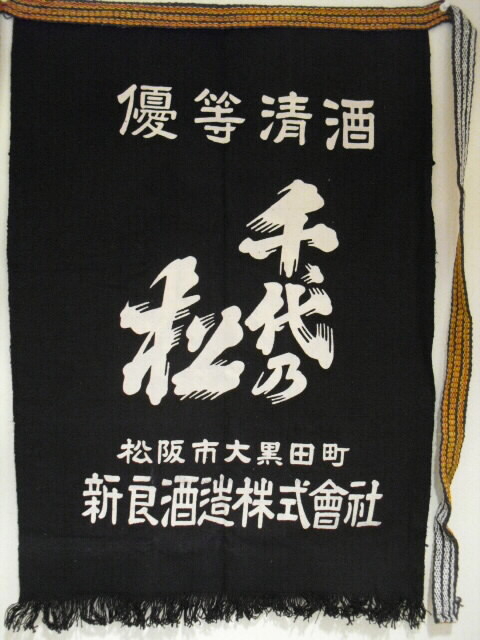 優等清酒
千代乃
松
松阪市大黒田町
新良酒造株式會社